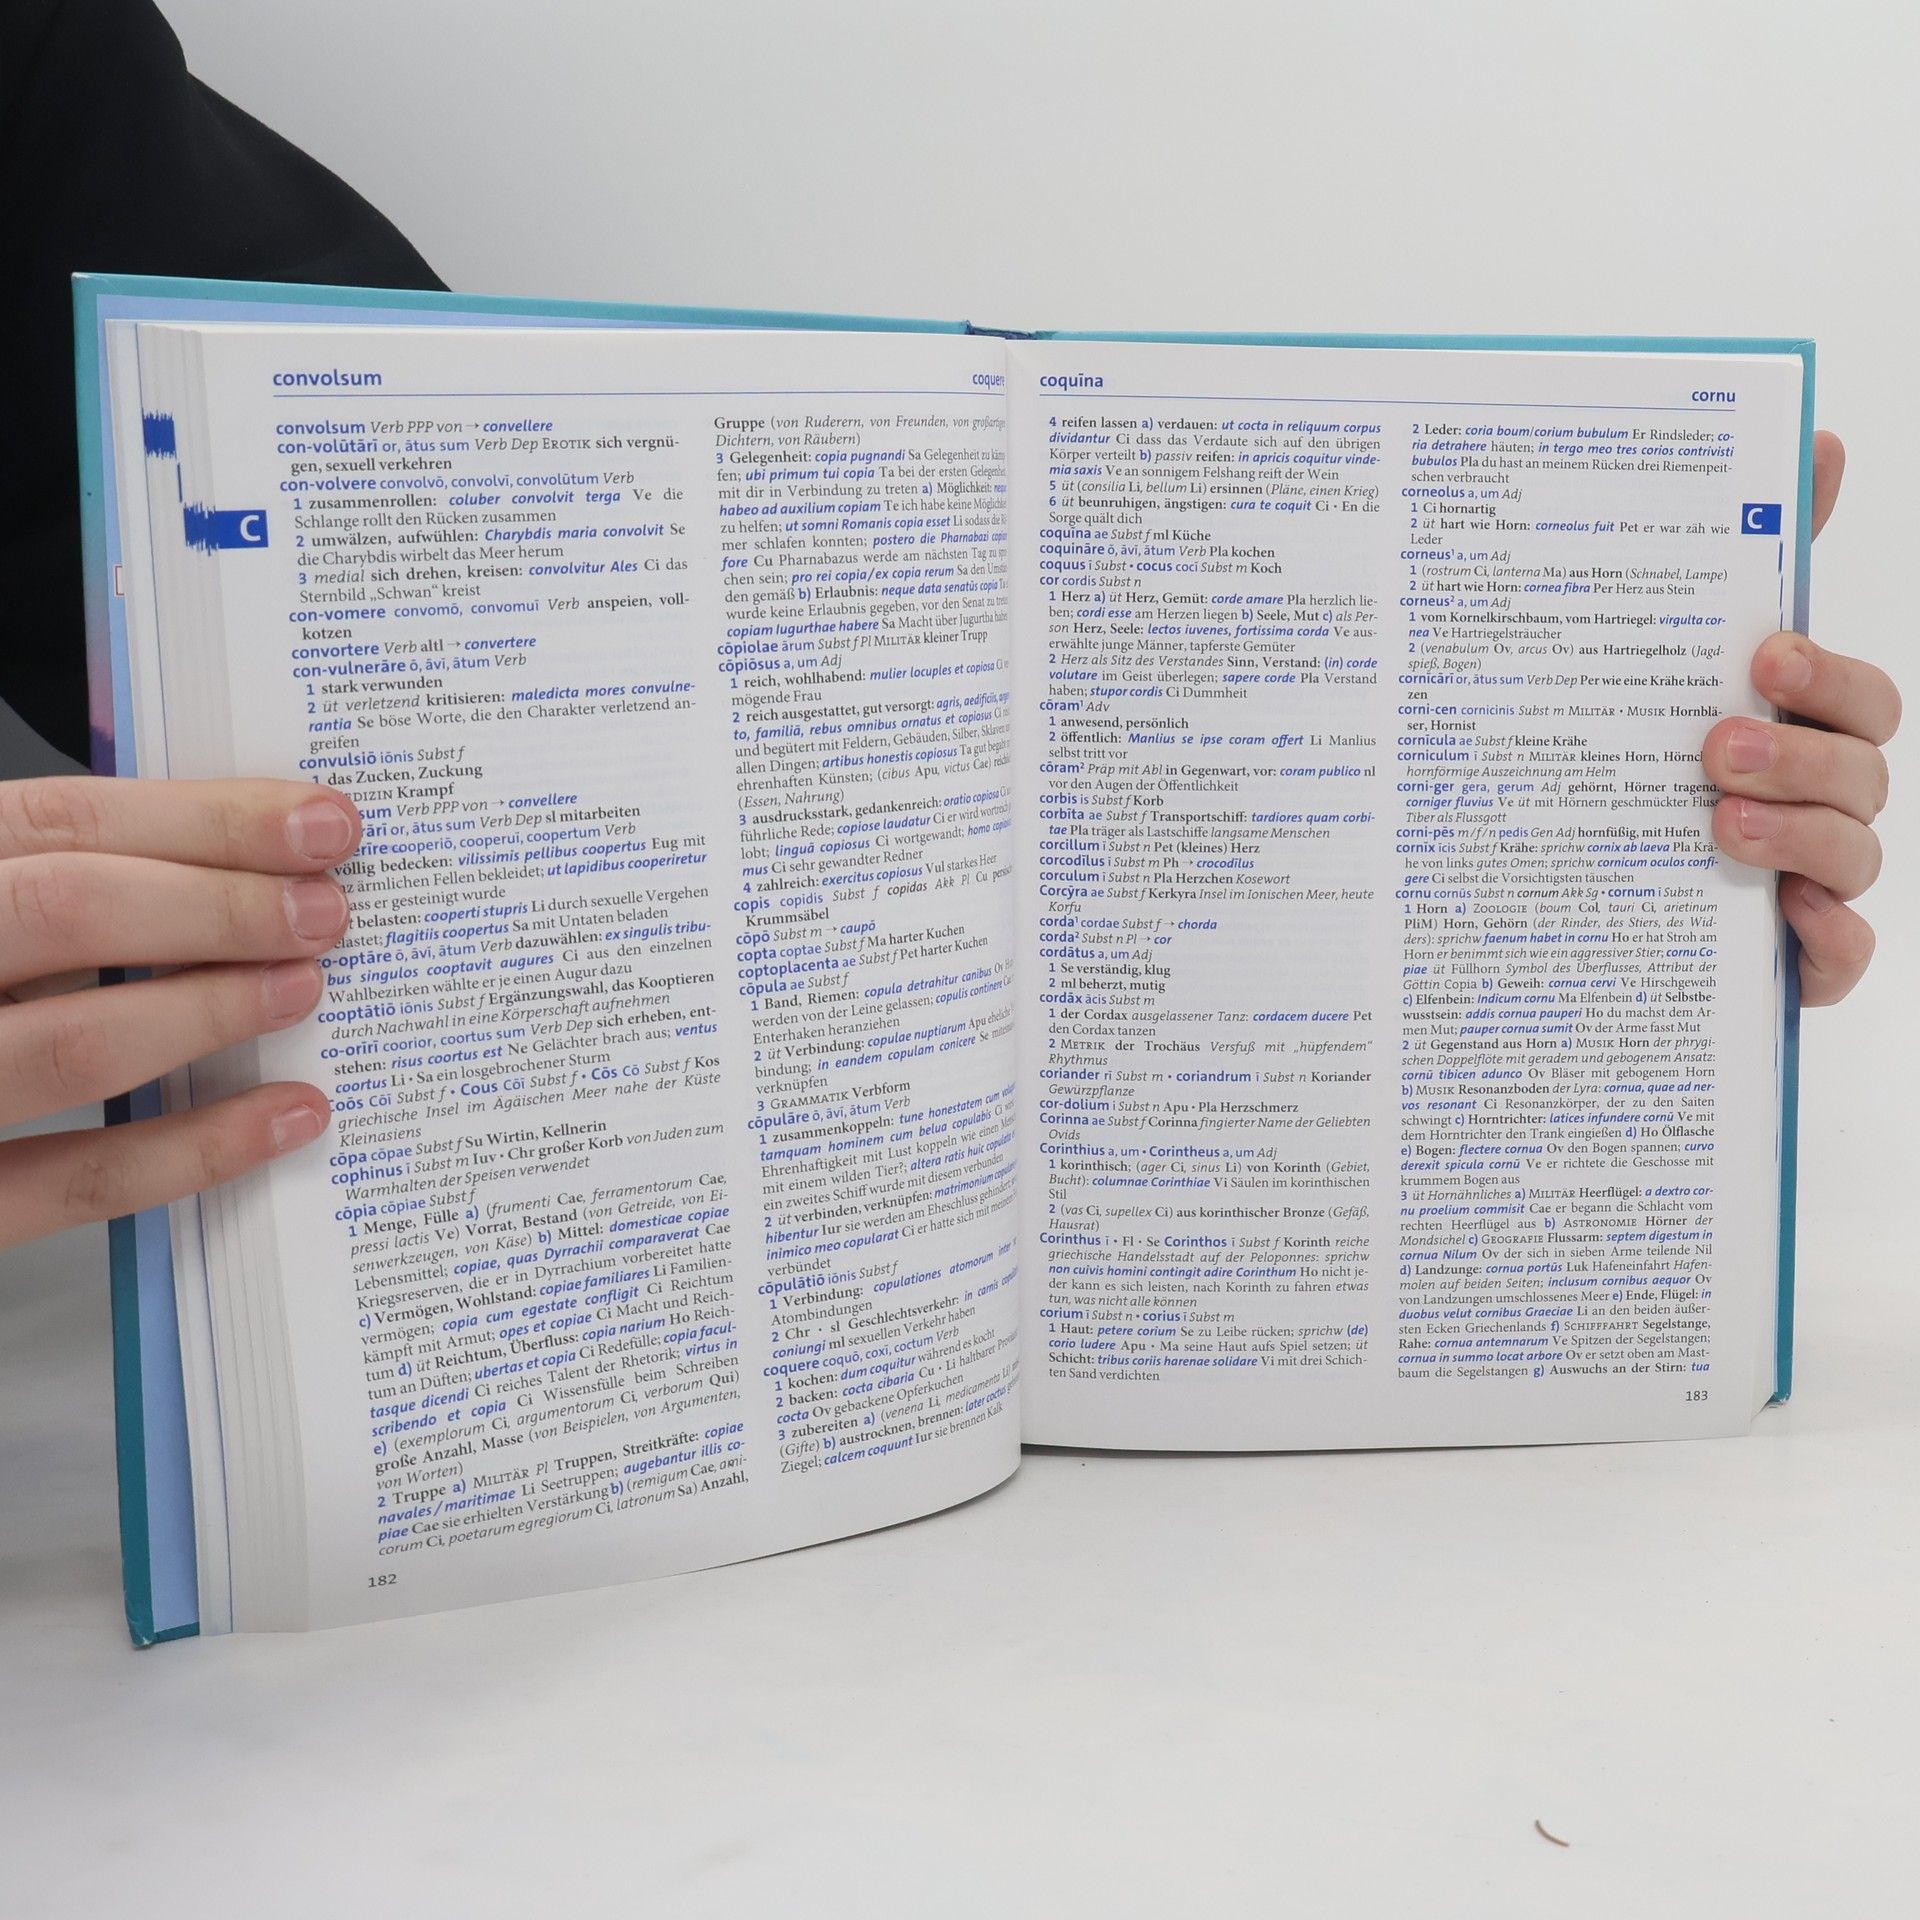 convolsum
coquere
C
convolsum Verb PPP von → convellere
con-volūtārī or, ātus sum Verb Dep EROTIK sich vergnü-
gen, sexuell verkehren
con-volvere convolvō, convolvī, convolūtum Verb
1 zusammenrollen: coluber convolvit terga Ve die
Schlange rollt den Rücken zusammen
2 umwälzen, aufwühlen: Charybdis maria convolvit Se
die Charybdis wirbelt das Meer herum
3 medial sich drehen, kreisen: convolvitur Ales Ci das
Sternbild „Schwan“ kreist
con-vomere convomō, convomuī Verb anspeien, voll-
kotzen
convortere Verb altl → convertere
con-vulnerāre ō, āvī, ātum Verb
1 stark verwunden
2 üt verletzend kritisieren: maledicta mores convulne-
rantia Se böse Worte, die den Charakter verletzend an-
greifen
convulsiō iōnis Subst f
1 das Zucken, Zuckung
Krampf
Verb PPP von → convellere
or, ātus sum Verb Dep sl mitarbeiten
cooperiō, cooperuī, coopertum Verb
völlig bedecken: vilissimis pellibus coopertus Eug mit
ärmlichen Fellen bekleidet; ut lapidibus cooperiretur
er gesteinigt wurde
belasten: cooperti stupris Li durch sexuelle Vergehen
flagitiis coopertus Sa mit Untaten beladen
co-optāre ō, āvī, ātum Verb dazuwählen: ex singulis tribu-
bus singulos cooptavit augures Ci aus den einzelnen
Wahlbezirken wählte er je einen Augur dazu
cooptātiō iōnis Subst f Ergänzungswahl, das Kooptieren
durch Nachwahl in eine Körperschaft aufnehmen
co-orīrī coorior, coortus sum Verb Dep sich erheben, ent-
stehen: risus coortus est Ne Gelächter brach aus; ventus
coortus Li • Sa ein losgebrochener Sturm
Coōs Cōī Subst f • Cous Cōī Subst f • Cōs Cō Subst f Kos
griechische Insel im Ägäischen Meer nahe der Küste
Kleinasiens
cōpa cōpae Subst f Su Wirtin, Kellnerin
cophinus ī Subst m Iuv • Chr großer Korb von Juden zum
Warmhalten der Speisen verwendet
cōpia cōpiae Subst f
1 Menge, Fülle a) (frumenti Cae, ferramentorum Cae,
pressi lactis Ve) Vorrat, Bestand (von Getreide, von Ei-
senwerkzeugen, von Käse) b) Mittel: domesticae copiae
Lebensmittel; copiae, quas Dyrrachii comparaverat Cae
Kriegsreserven, die er in Dyrrachium vorbereitet hatte
c) Vermögen, Wohlstand: copiae familiares Li Familien-
vermögen; copia cum egestate confligit Ci Reichtum
kämpft mit Armut; opes et copiae Ci Macht und Reich-
tum d) üt Reichtum, Überfluss: copia narium Ho Reich-
tum an Düften; ubertas et copia Ci Redefülle; copia facul-
tasque dicendi Ci reiches Talent der Rhetorik; virtus in
scribendo et copia Ci Wissensfülle beim Schreiben
e) (exemplorum Ci, argumentorum Ci, verborum Qui)
große Anzahl, Masse (von Beispielen, von Argumenten,
von Worten)
2 Truppe a) MILITÄR Pl Truppen, Streitkräfte: copiae
navales / maritimae Li Seetruppen; augebantur illis co-
piae Cae sie erhielten Verstärkung b) (remigum Cae, ami-
corum Ci, poetarum egregiorum Ci, latronum Sa) Anzahl,
182
Gruppe (von Ruderern, von Freunden, von großartigen
Dichtern, von Räubern)
3 Gelegenheit: copia pugnandi Sa Gelegenheit zu kämp-
fen; ubi primum tui copia Ta bei der ersten Gelegenheit
mit dir in Verbindung zu treten a) Möglichkeit: neque
habeo ad auxilium copiam Te ich habe keine Möglichkeit
zu helfen; ut somni Romanis copia esset Li sodass die Rö-
mer schlafen konnten; postero die Pharnabazi copiam
fore Cu Pharnabazus werde am nächsten Tag zu spre-
chen sein; pro rei copia/ex copia rerum Sa den Umstän-
den gemäß b) Erlaubnis: neque data senatūs copia Ta es
wurde keine Erlaubnis gegeben, vor den Senat zu treten
copiam Iugurthae habere Sa Macht über Jugurtha haben
cōpiolae ārum Subst f Pl MILITÄR kleiner Trupp
cōpiōsus a, um Adj
1 reich, wohlhabend: mulier locuples et copiosa Ci
mögende Frau
2 reich ausgestattet, gut versorgt: agris, aedificiis,
to, familiā, rebus omnibus ornatus et copiosus Ci
und begütert mit Feldern, Gebäuden, Silber, Sklaven
allen Dingen; artibus honestis copiosus Ta gut begabt
ehrenhaften Künsten; (cibus Apu, victus Cae) reichlich
(Essen, Nahrung)
3 ausdrucksstark, gedankenreich: oratio copiosa Ci
führliche Rede; copiose laudatur Ci er wird wortreich
lobt; linguā copiosus Ci wortgewandt; homo
mus Ci sehr gewandter Redner
4 zahlreich: exercitus copiosus Vul starkes Heer
copis copidis Subst f copidas Akk Pl Cu
Krummsäbel
cōpō Subst m → caupō
copta coptae Subst f Ma harter Kuchen
coptoplacenta ae Subst f Pet harter Kuchen
cōpula ae Subst f
1 Band, Riemen: copula detrahitur canibus Ov
werden von der Leine gelassen; copulis continere
Enterhaken heranziehen
2 üt Verbindung: copulae nuptiarum Apu
bindung; in eandem copulam conicere Se
verknüpfen
3 GRAMMATIK Verbform
cōpulāre ō, āvī, ātum Verb
1 zusammenkoppeln: tune honestatem cum
tamquam hominem cum belua copulabis Ci
Ehrenhaftigkeit mit Lust koppeln wie einen
mit einem wilden Tier?; altera ratis huic
ein zweites Schiff wurde mit diesem verbunden
2 üt verbinden, verknüpfen: matrimonium
hibentur Iur sie werden am Eheschluss gehindert;
inimico meo copularat Ci er hatte sich mit
verbündet
cōpulātiō iōnis Subst f
1 Verbindung: copulationes atomorum inter
Atombindungen
2 Chr • sl Geschlechtsverkehr: in carnis
coniungi ml sexuellen Verkehr haben
coquere coquō, coxī, coctum Verb
1 kochen: dum coquitur während es kocht
2 backen: cocta cibaria Cu • Li haltbarer
cocta Ov gebackene Opferkuchen
3 zubereiten a) (venena Li, medicamenta Li)
(Gifte) b) austrocknen, brennen: later coctus
Ziegel; calcem coquunt Iur sie brennen Kalk
coquīna
cornu
C
4 reifen lassen a) verdauen: ut cocta in reliquum corpus
dividantur Ci dass das Verdaute sich auf den übrigen
Körper verteilt b) passiv reifen: in apricis coquitur vinde-
mia saxis Ve an sonnigem Felshang reift der Wein
5 üt (consilia Li, bellum Li) ersinnen (Pläne, einen Krieg)
6 üt beunruhigen, ängstigen: cura te coquit Ci • En die
Sorge quält dich
coquīna ae Subst f ml Küche
coquīnāre ō, āvī, ātum Verb Pla kochen
coquus ī Subst • cocus cocī Subst m Koch
cor cordis Subst n
1 Herz a) üt Herz, Gemüt: corde amare Pla herzlich lie-
ben; cordi esse am Herzen liegen b) Seele, Mut c) als Per-
son Herz, Seele: lectos iuvenes, fortissima corda Ve aus-
erwählte junge Männer, tapferste Gemüter
2 Herz als Sitz des Verstandes Sinn, Verstand: (in) corde
volutare im Geist überlegen; sapere corde Pla Verstand
haben; stupor cordis Ci Dummheit
cōram¹ Adv
1 anwesend, persönlich
2 öffentlich: Manlius se ipse coram offert Li Manlius
selbst tritt vor
cōram² Präp mit Abl in Gegenwart, vor: coram publico nl
vor den Augen der Öffentlichkeit
corbis is Subst f Korb
corbīta ae Subst f Transportschiff: tardiores quam corbi-
tae Pla träger als Lastschiffe langsame Menschen
corcillum ī Subst n Pet (kleines) Herz
corcodīlus ī Subst m Ph → crocodīlus
corculum ī Subst n Pla Herzchen Kosewort
Corcȳra ae Subst f Kerkyra Insel im Ionischen Meer, heute
Korfu
corda¹ cordae Subst f → chorda
corda² Subst n Pl → cor
cordātus a, um Adj
1 Se verständig, klug
2 ml beherzt, mutig
cordāx ācis Subst m
1 der Cordax ausgelassener Tanz: cordacem ducere Pet
den Cordax tanzen
2 METRIK der Trochäus Versfuß mit „hüpfendem“
Rhythmus
coriander rī Subst m • coriandrum ī Subst n Koriander
Gewürzpflanze
cor-dolium ī Subst n Apu • Pla Herzschmerz
Corinna ae Subst f Corinna fingierter Name der Geliebten
Ovids
Corinthius a, um • Corintheus a, um Adj
1 korinthisch; (ager Ci, sinus Li) von Korinth (Gebiet,
Bucht): columnae Corinthiae Vi Säulen im korinthischen
Stil
2 (vas Ci, supellex Ci) aus korinthischer Bronze (Gefäß,
Hausrat)
Corinthus ī • Fl • Se Corinthos ī Subst f Korinth reiche
griechische Handelsstadt auf der Peloponnes: sprichw
non cuivis homini contingit adire Corinthum Ho nicht je-
der kann es sich leisten, nach Korinth zu fahren etwas
tun, was nicht alle können
corium ī Subst n • corius ī Subst m
1 Haut: petere corium Se zu Leibe rücken; sprichw (de)
corio ludere Apu • Ma seine Haut aufs Spiel setzen; üt
Schicht: tribus coriis harenae solidare Vi mit drei Schich-
ten Sand verdichten
2 Leder: coria boum/corium bubulum Er Rindsleder; co-
ria detrahere häuten; in tergo meo tres corios contrivisti
bubulos Pla du hast an meinem Rücken drei Riemenpeit-
schen verbraucht
corneolus a, um Adj
1 Ci hornartig
2 üt hart wie Horn: corneolus fuit Pet er war zäh wie
Leder
corneus¹ a, um Adj
1 (rostrum Ci, lanterna Ma) aus Horn (Schnabel, Lampe)
2 üt hart wie Horn: cornea fibra Per Herz aus Stein
corneus² a, um Adj
1 vom Kornelkirschbaum, vom Hartriegel: virgulta cor-
nea Ve Hartriegelsträucher
2 (venabulum Ov, arcus Ov) aus Hartriegelholz (Jagd-
spieß, Bogen)
cornīcārī or, ātus sum Verb Dep Per wie eine Krähe kräch-
zen
corni-cen cornicinis Subst m MILITÄR • MUSIK Hornblä-
ser, Hornist
cornīcula ae Subst f kleine Krähe
corniculum ī Subst n MILITÄR kleines Horn, Hörnch
hornförmige Auszeichnung am Helm
corni-ger gera, gerum Adj gehörnt, Hörner tragend:
corniger fluvius Ve üt mit Hörnern geschmückter Fluss
Tiber als Flussgott
corni-pēs m/f/n pedis Gen Adj hornfüßig, mit Hufen
cornīx īcis Subst f Krähe: sprichw cornix ab laeva Pla Krä-
he von links gutes Omen; sprichw cornicum oculos confi-
gere Ci selbst die Vorsichtigsten täuschen
cornu cornūs Subst n cornum Akk Sg • cornum ī Subst n
1 Horn a) ZOOLOGIE (boum Col, tauri Ci, arietinum
PliM) Horn, Gehörn (der Rinder, des Stiers, des Wid-
ders): sprichw faenum habet in cornu Ho er hat Stroh am
Horn er benimmt sich wie ein aggressiver Stier; cornu Co-
piae üt Füllhorn Symbol des Überflusses, Attribut der
Göttin Copia b) Geweih: cornua cervi Ve Hirschgeweih
c) Elfenbein: Indicum cornu Ma Elfenbein d) üt Selbstbe-
wusstsein: addis cornua pauperi Ho du machst dem Ar-
men Mut; pauper cornua sumit Ov der Arme fasst Mut
2 üt Gegenstand aus Horn a) MUSIK Horn der phrygi-
schen Doppelflöte mit geradem und gebogenem Ansatz:
cornū tibicen adunco Ov Bläser mit gebogenem Horn
b) MUSIK Resonanzboden der Lyra: cornua, quae ad ner-
vos resonant Ci Resonanzkörper, der zu den Saiten
schwingt c) Horntrichter: latices infundere cornū Ve mit
dem Horntrichter den Trank eingießen d) Ho Ölflasche
e) Bogen: flectere cornua Ov den Bogen spannen; curvo
derexit spicula cornū Ve er richtete die Geschosse mit
krummem Bogen aus
3 üt Hornähnliches a) MILITÄR Heerflügel: a dextro cor-
nu proelium commisit Cae er begann die Schlacht vom
rechten Heerflügel aus b) ASTRONOMIE Hörner der
Mondsichel c) GEOGRAFIE Flussarm: septem digestum in
cornua Nilum Ov der sich in sieben Arme teilende Nil
d) Landzunge: cornua portūs Luk Hafeneinfahrt Hafen-
molen auf beiden Seiten; inclusum cornibus aequor Ov
von Landzungen umschlossenes Meer e) Ende, Flügel: in
duobus velut cornibus Graeciae Li an den beiden äußer-
sten Ecken Griechenlands f) SCHIFFFAHRT Segelstange,
Rahe: cornua antemnarum Ve Spitzen der Segelstangen;
cornua in summo locat arbore Ov er setzt oben am Mast-
baum die Segelstangen g) Auswuchs an der Stirn: tua
183